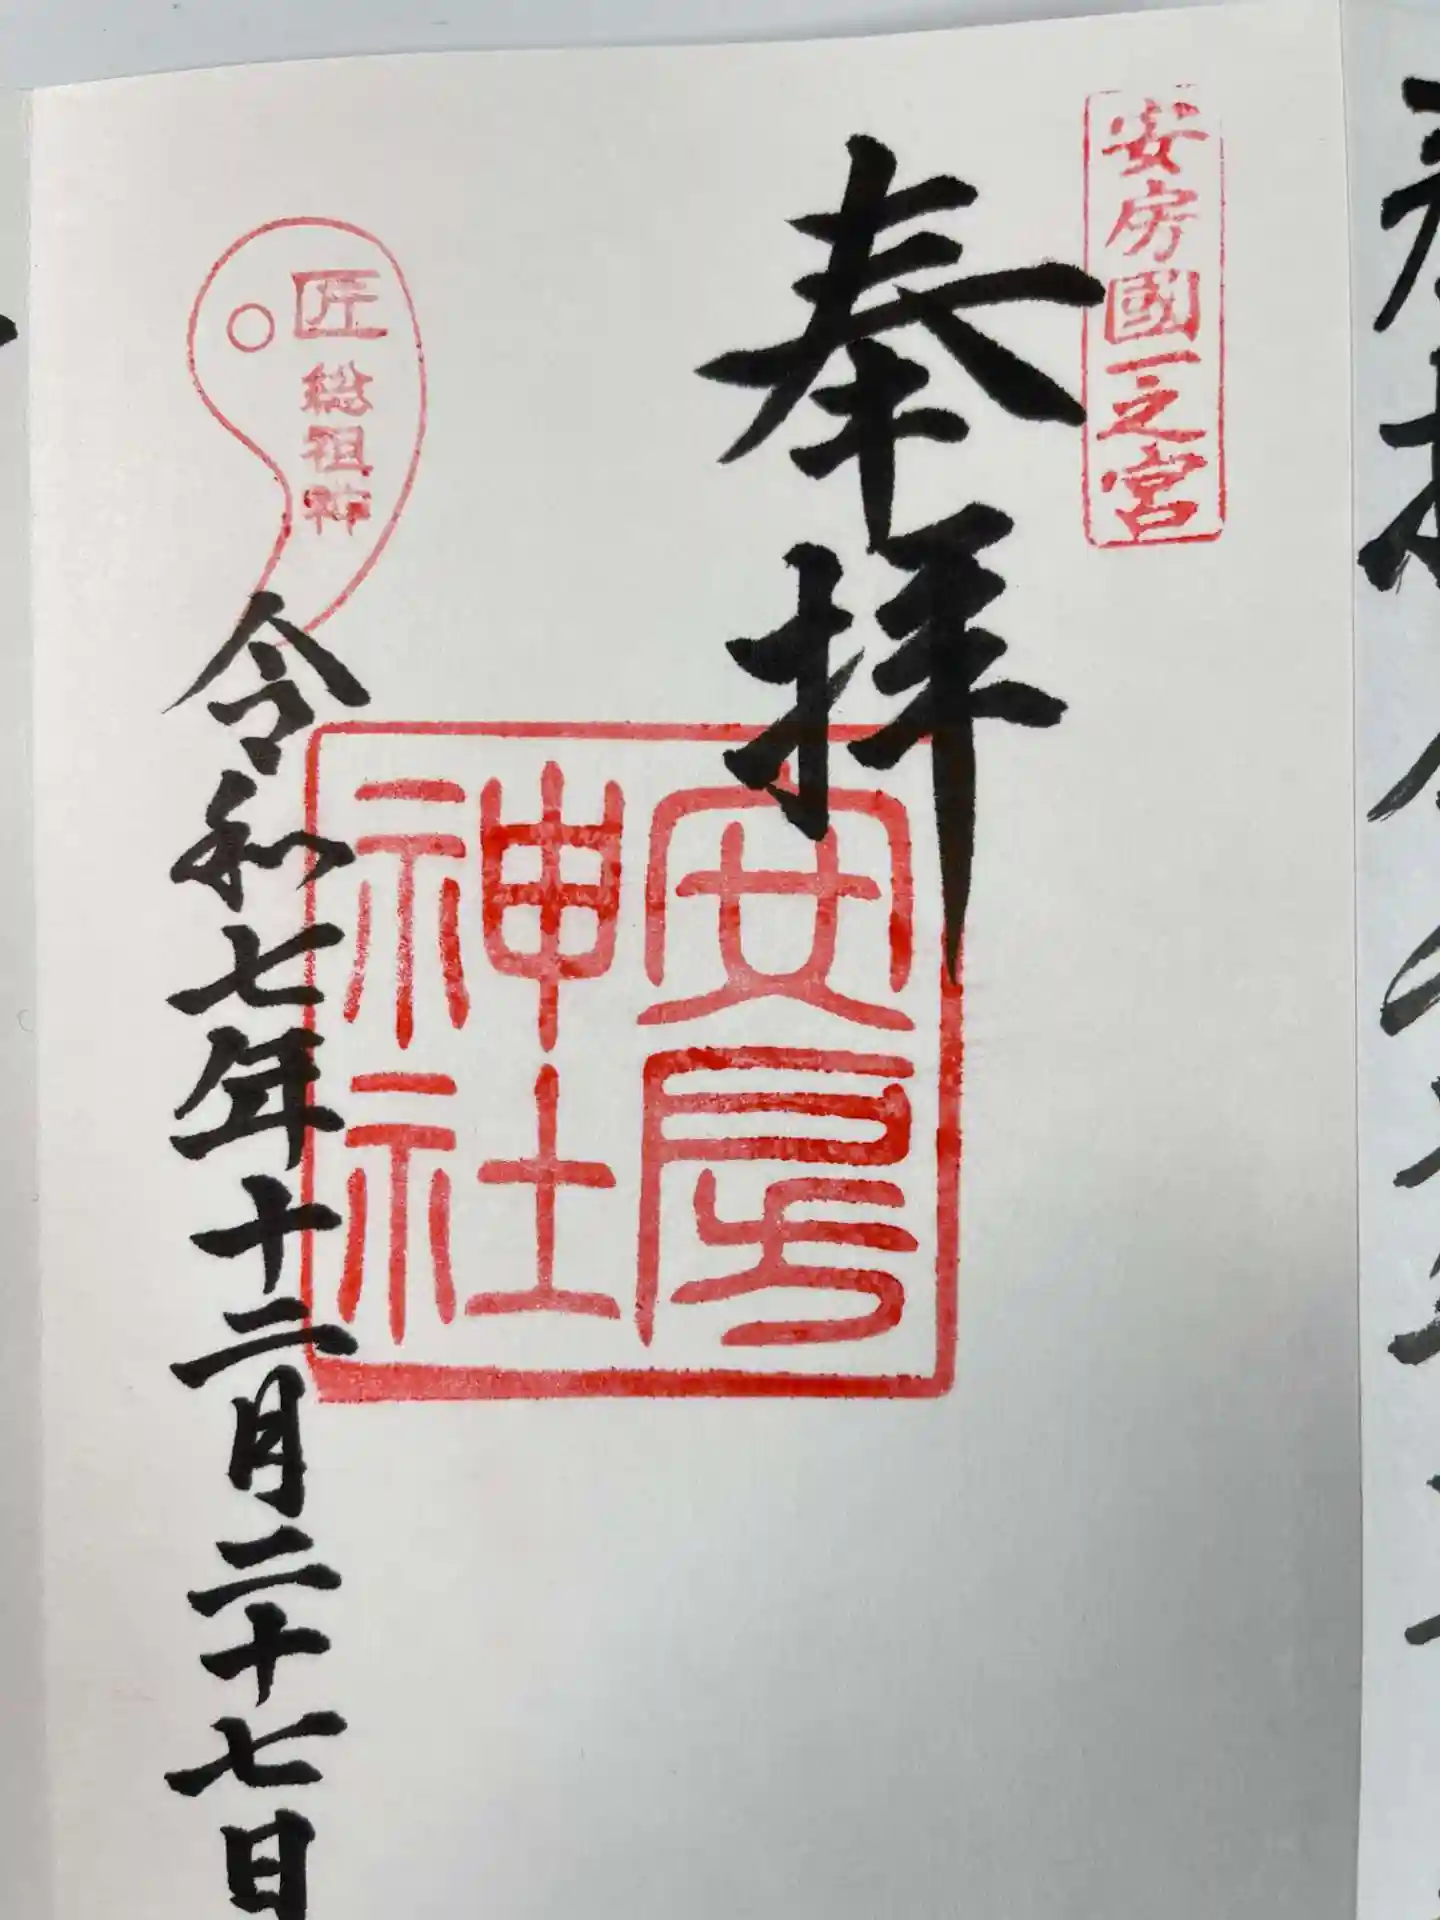 安房國一之宮
奉拝
安房
神社
匠総祖神
令和七年十二月二十七日